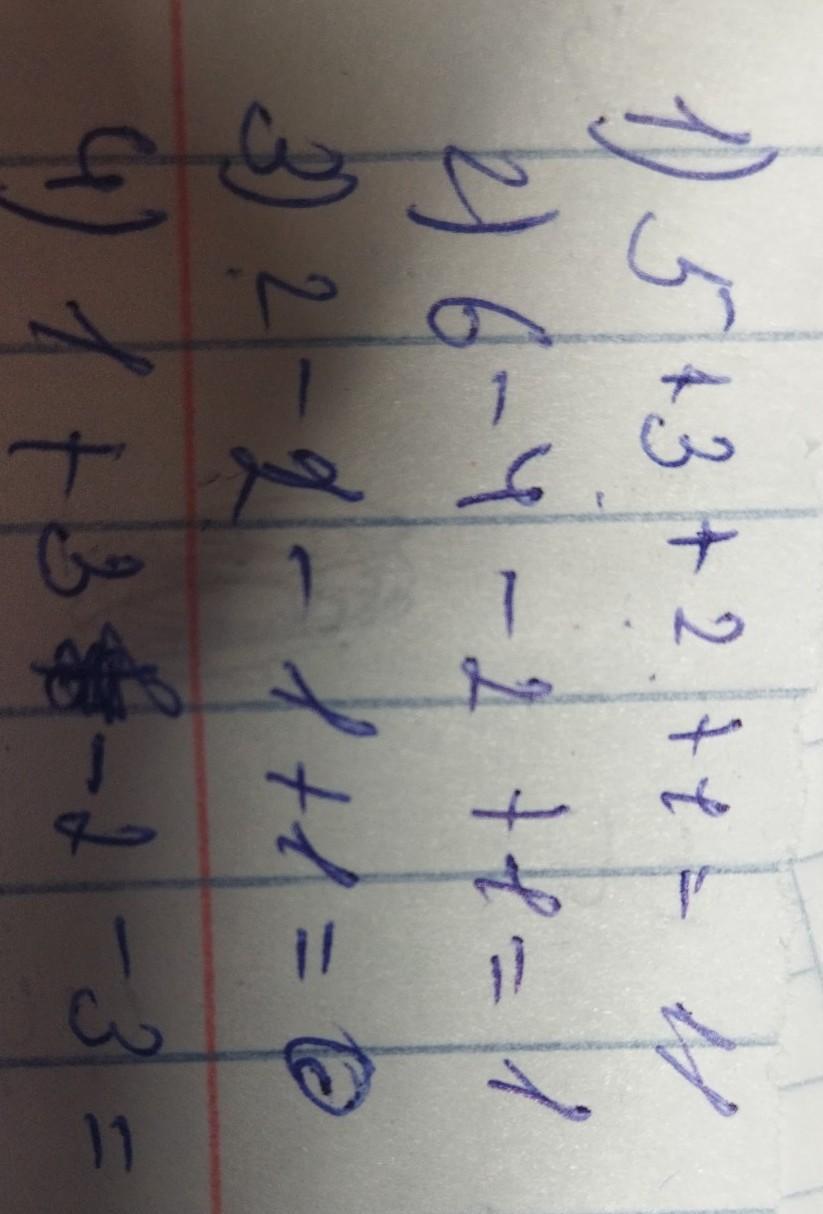 1) 5 + 3 + 2 + 1 = 11
2) 6 - 4 - 2 + 1 = 1
3) 2 - 2 - 1 + 1 = 0
4) 1 + 3 - 2 - 3 =